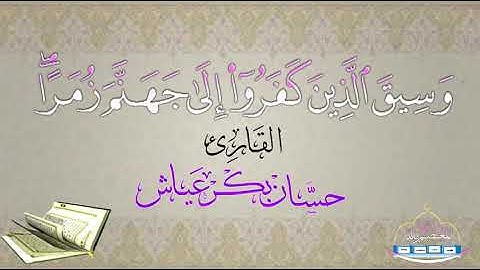 وَسِيقَ ٱلَّذِينَ كَفَرُوٓا۟ إِلَىٰ جَهَنَّمَ زُمَرًاۖ
القارئ
حسّان بكر عياش